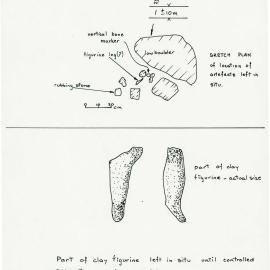 1 ± 10m
vertical bone
marker
figurine leg(?)
low boulder
rubbing stone
0 10 20
cm
SKETCH PLAN
of location of
artefacts left in
situ.
part of clay
figurine - actual size
Part of clay figurine left in situ until controlled